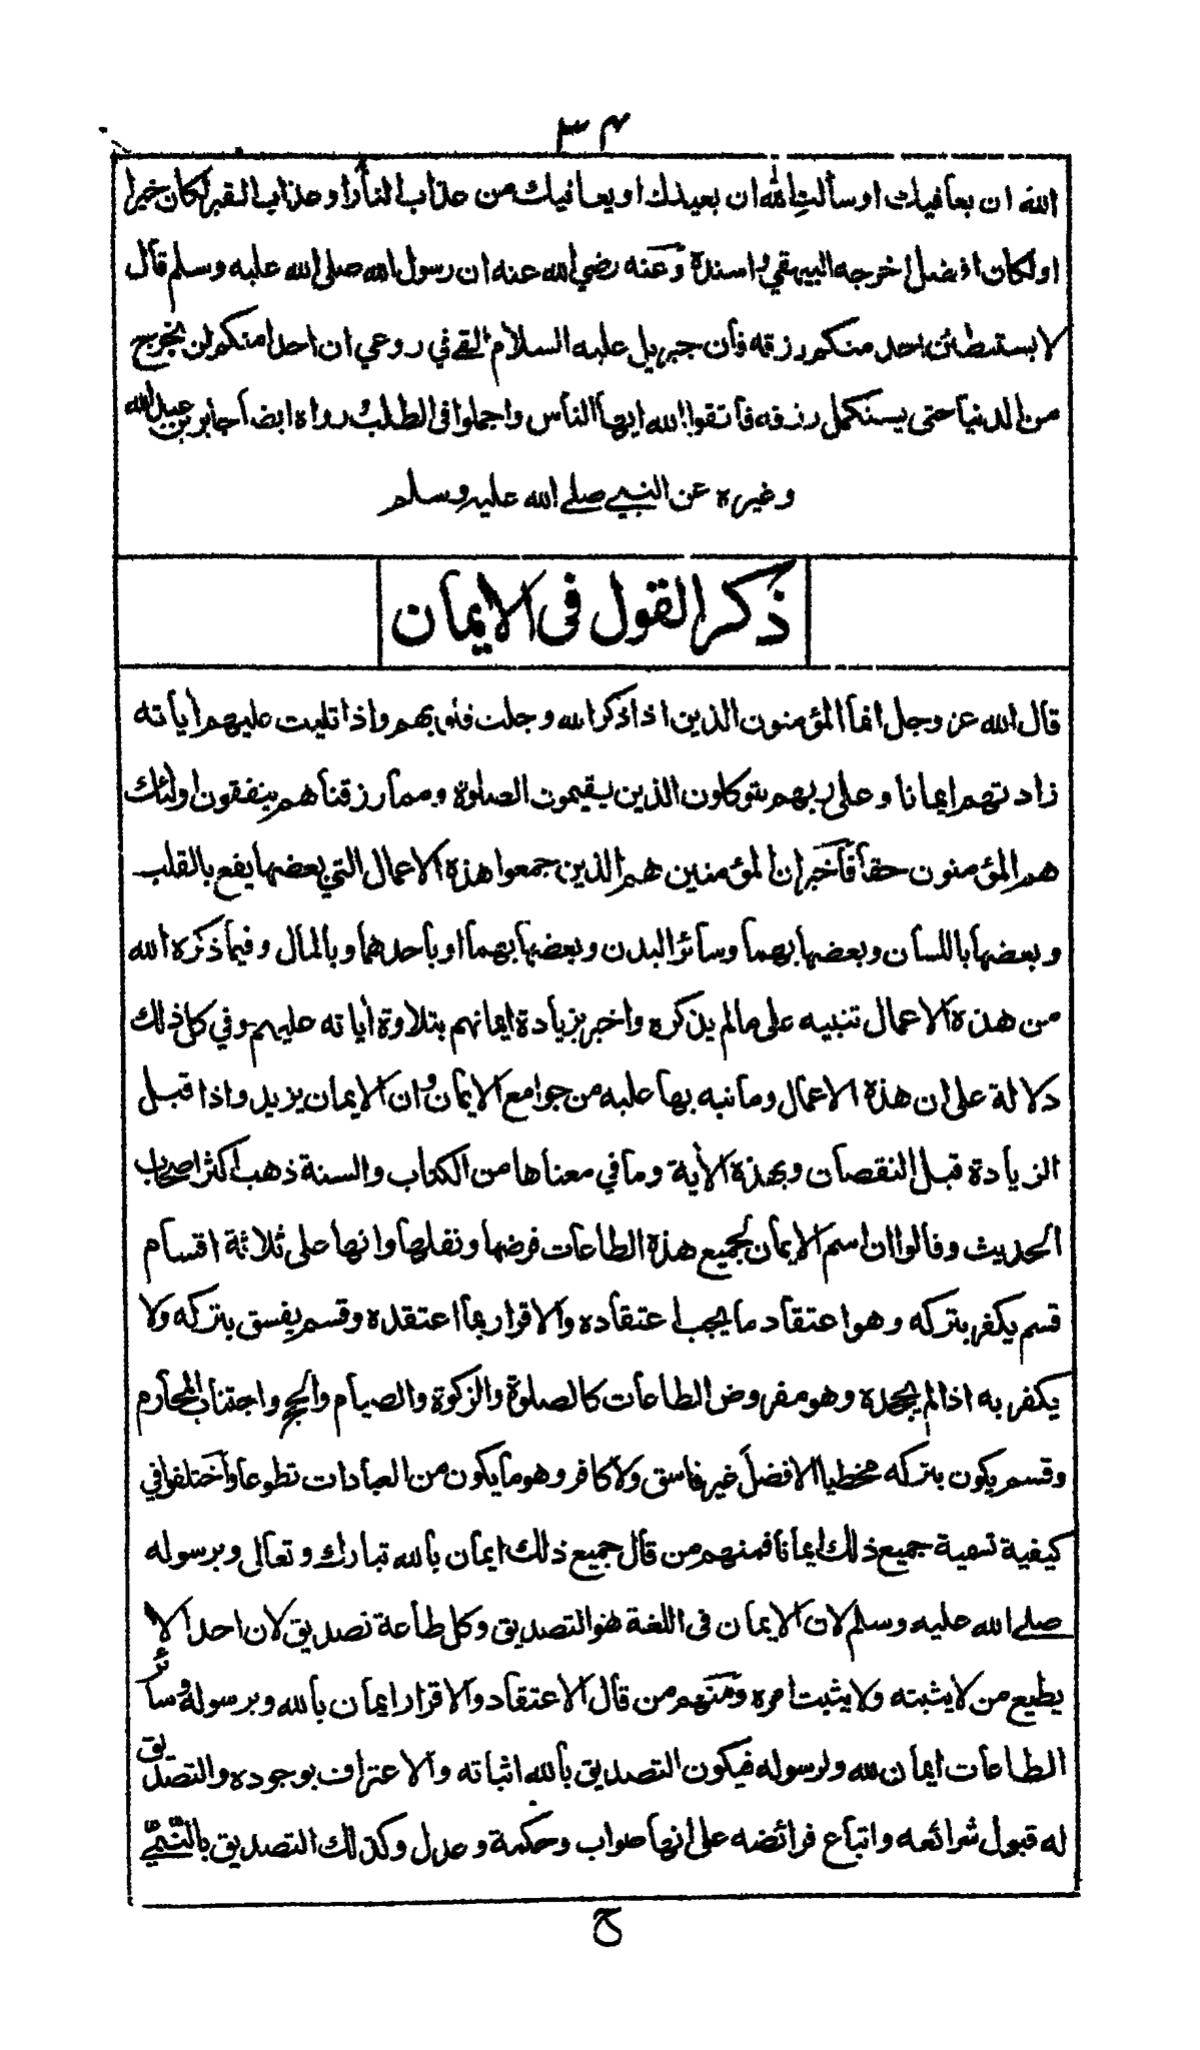 ٣٤
الله ان يعافيك او سألت الله ان يعيذك او يعافيك من عذاب النار او عذاب القبر لكان خيرا
او لكان افضل اخرجه البيهقي و اسنده وعنه رضي الله عنه ان رسول الله صلى الله عليه وسلم قال
لا يستبطئن احد منكم رزقه فان جبريل عليه السلام القى في روعي ان احدا منكم لن يخرج
من الدنيا حتى يستكمل رزقه فاتقوا الله ايها الناس واجملوا فى الطلب و رواه ايضا جابر بن عبد الله
وغيره عن النبي صلى الله عليه وسلم
ذكر القول فى الايمان
قال الله عز وجل انما المؤمنون الذين اذا ذكر الله وجلت قلوبهم واذا تليت عليهم أياته
زادتهم ايمانا وعلى ربهم يتوكلون الذين يقيمون الصلوة ومما رزقناهم ينفقون اولئك
هم المؤمنون حقا فأخبر ان المؤمنين هم الذين جمعوا هذه الاعمال التي بعضها يقع بالقلب
وبعضها باللسان وبعضها بهما وسائر البدن وبعضها بهما او باحدهما وبالمال وفيما ذكره الله
من هذه الاعمال تنبيه على مالم يذكره واخبر بزيادة ايمانهم بتلاوة أياته عليهم وفي كل ذلك
دلالة على ان هذه الاعمال وما نبه بها عليه من جوامع الايمان وان الايمان يزيد واذا قبل
الزيادة قبل النقصان وبهذه الأية وما في معناها من الكتاب والسنة ذهب اكثر اصحاب
الحديث وقالوا ان اسم الايمان لجميع هذه الطاعات فرضها ونفلها وانها على ثلاثة اقسام
قسم يكفر بتركه وهو اعتقاد ما يجب اعتقاده والاقرار بما اعتقده وقسم يفسق بتركه ولا
يكفر به اذا لم يجحده وهو مفروض الطاعات كالصلوة والزكوة والصيام والحج واجتناب المحارم
وقسم يكون بتركه مخطيا الافضل غير فاسق ولا كافر وهو ما يكون من العبادات تطوعا واختلفوا في
كيفية تسمية جميع ذلك ايمانا فمنهم من قال جميع ذلك ايمان بالله تبارك وتعالى وبرسوله
صلى الله عليه وسلم لان الايمان فى اللغة هو التصديق وكل طاعة تصديق لان احدا لا
يطيع من لا يثبته ولا يثبت امره ومنهم من قال الاعتقاد والاقرار ايمان بالله وبرسوله وسائر
الطاعات ايمان لله ولرسوله فيكون التصديق بالله اثباته والاعتراف بوجوده والتصديق
له قبول شرائعه واتباع فرائضه على انها صواب وحكمة وعدل وكذلك التصديق بالنبي
ح